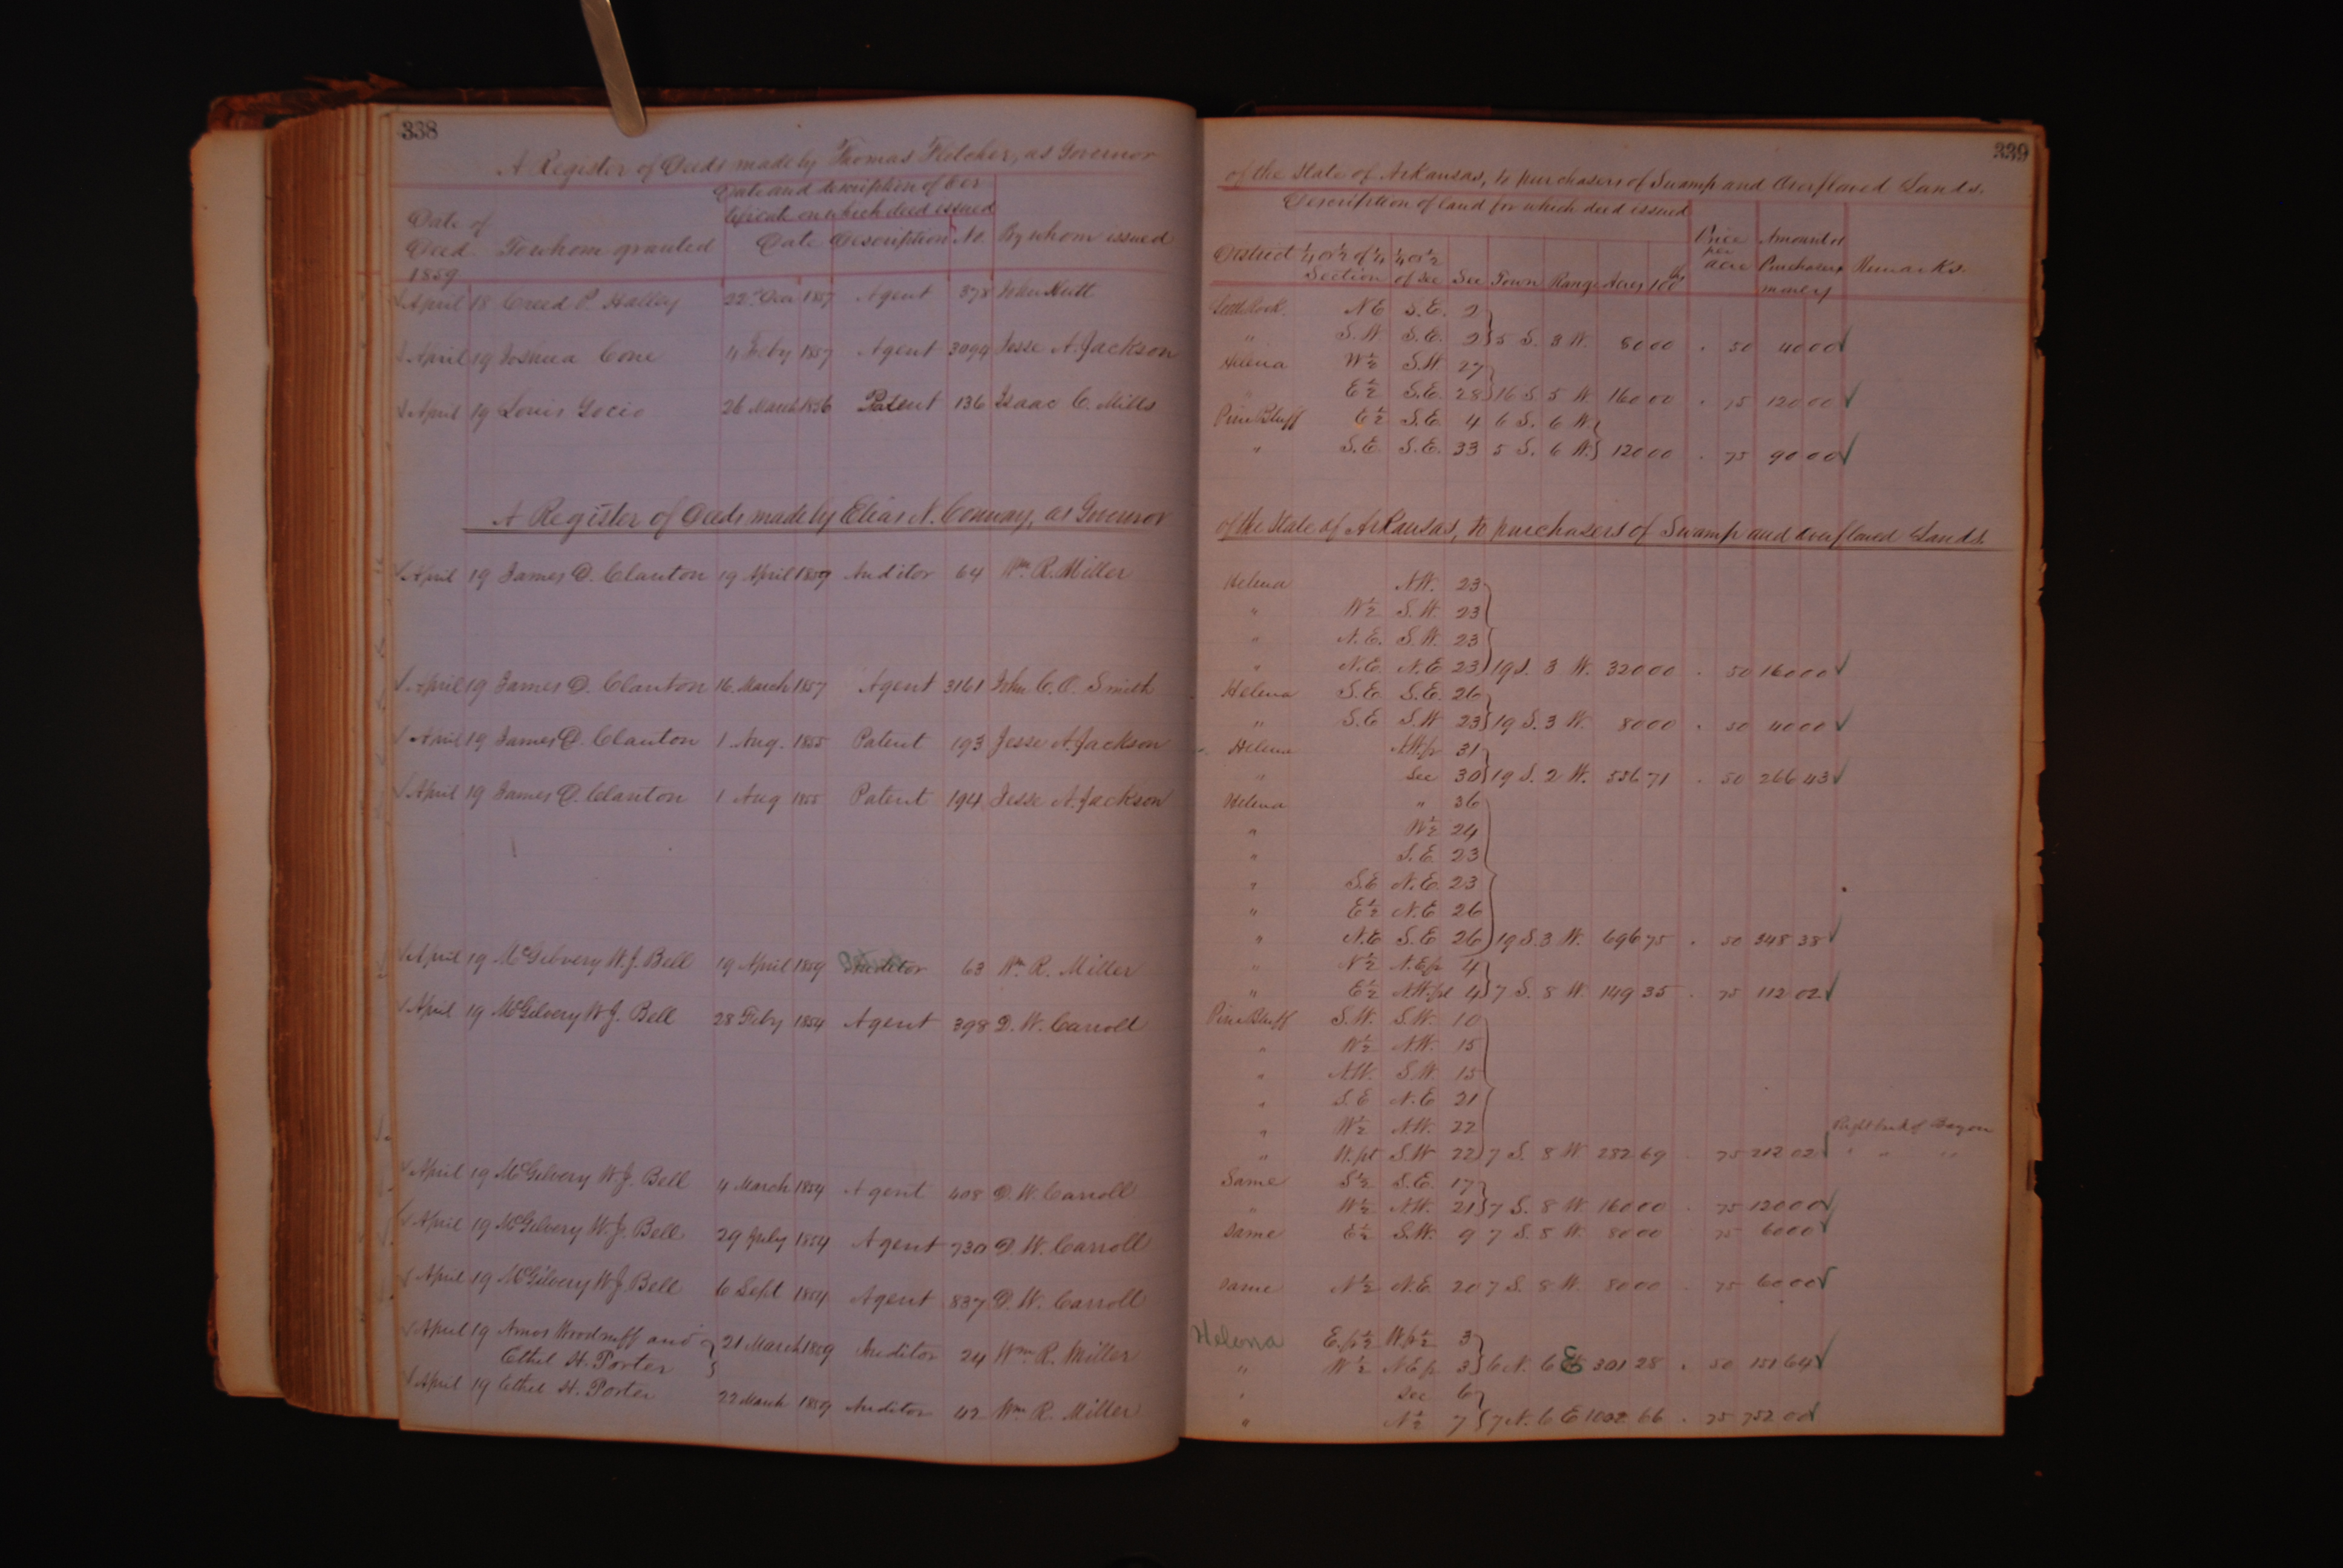 338
A Register of Deeds made by Thomas Fletcher, as Governor
Date and description of Cer
tificate on which deed issued
Date of
Deed. To whom granted Date Description No. By whom issued
1859
April 18 Creed P. Halley 22 1857 Agent 378 John Hutt
April 19 Joshua Cone 4 Feby 1857 Agent 3094 Jesse A. Jackson
April 19 Louis Gocio 26 March 1856 Patent 136 Isaac C. Mills
A Register of Deeds made by Elias N. Conway, as Governor
April 19 James D. Clanton 19 April 1859 Auditor 64 Wm. R. Miller
April 19 James D. Clanton 16 March 1857 Agent 3161 John C. O. Smith
April 19 James D. Clanton 1 Aug. 1855 Patent 193 Jesse A. Jackson
April 19 James D. Clanton 1 Aug 1855 Patent 194 Jesse A. Jackson
April 19 McGilvery W. J. Bell 19 April 1859 Auditor 63 Wm R. Miller
April 19 McGilvery W. J. Bell 28 Feby 1854 Agent 398 D. W. Carroll
April 19 McGilvery W. J. Bell 4 March 1854 Agent 408 D. W. Carroll
April 19 McGilvery W. J. Bell 29 July 1854 Agent 730 D. W. Carroll
April 19 McGilvery W J Bell 6 Sept 1854 Agent 837 D. W. Carroll
April 19 Amos Woodruff and 21 March 1859 Auditor 24 Wm R. Miller
Ethel H. Porter
April 19 Ethel H. Porter 22 March 1859 Auditor 42 Wm R. Miller
339
of the State of Arkansas, to purchasers of Swamp and Overflowed Lands.
Description of land for which deed issued
District ¼ or ½ of ¼ ¼ or ½ Price per Amount of
Section of Sec Sec Town Range Acres 100ths acre Purchase Remarks.
money
Little Rock N E S. E. 2
" S. W S. E. 2 5 S. 8 W. 80 00 . 50 40 00
Helena W ½ S. W. 27
" E ½ S. E. 28 16 S 5 W 160 00 . 75 120 00
Pine Bluff E ½ S. E. 4 6 S. 6 W.
" S. E. S. E. 33 5 S. 6 W. 120 00 . 75 90 00
of the State of Arkansas, to purchasers of Swamp and overflowed Lands
Helena N.W. 23
" W ½ S. W. 23
" N. E. S. W. 23
" N. E. N. E 23 19 S. 3 W. 320 00 . 50 160 00
Helena S. E S. E. 26
" S. E S. W 23 19 S. 3 W. 80 00 . 50 40 00
Helena N.W. fr 31
" Sec 30 19 S. 2 W. 71 . 50 266 43
Helena " 36
" W ½ 24
" S. E. 23
" S. E N. E. 23
" E ½ N. E 26
" N. E S. E 26 19 S. 3 W. 696 75 . 50 348 38
" N ½ N. E fr 4
" E ½ N.W. 4 7 S. 8 W. 149 35 . 75 112 02
Pine Bluff S. W. S. W. 10
" W ½ N.W. 15
" N.W. S. W. 15
" S. E N. E 21
" W ½ N.W. 22 Right bank of Bayou
" W. pt S. W 22 7 S. 8 W 282 69 . 75 212 02 " " "
Same S ½ S. E. 17
" W ½ N.W. 21 7 S. 8 W. 160 00 . 75 120 00
same E ½ S.W. 9 7 S. 8 W. 80 00 75 60 00
same N ½ N. E. 20 7 S. 8 W. 80 00 . 75 60 00
Helena E. fr ½ W. fr ½ 3
" W ½ N E fr 3 6 N. 6 E 301 28 . 50 151 64
" Sec 6
" N ½ 7 7 N. 6 E 1002 66 . 75 752 00